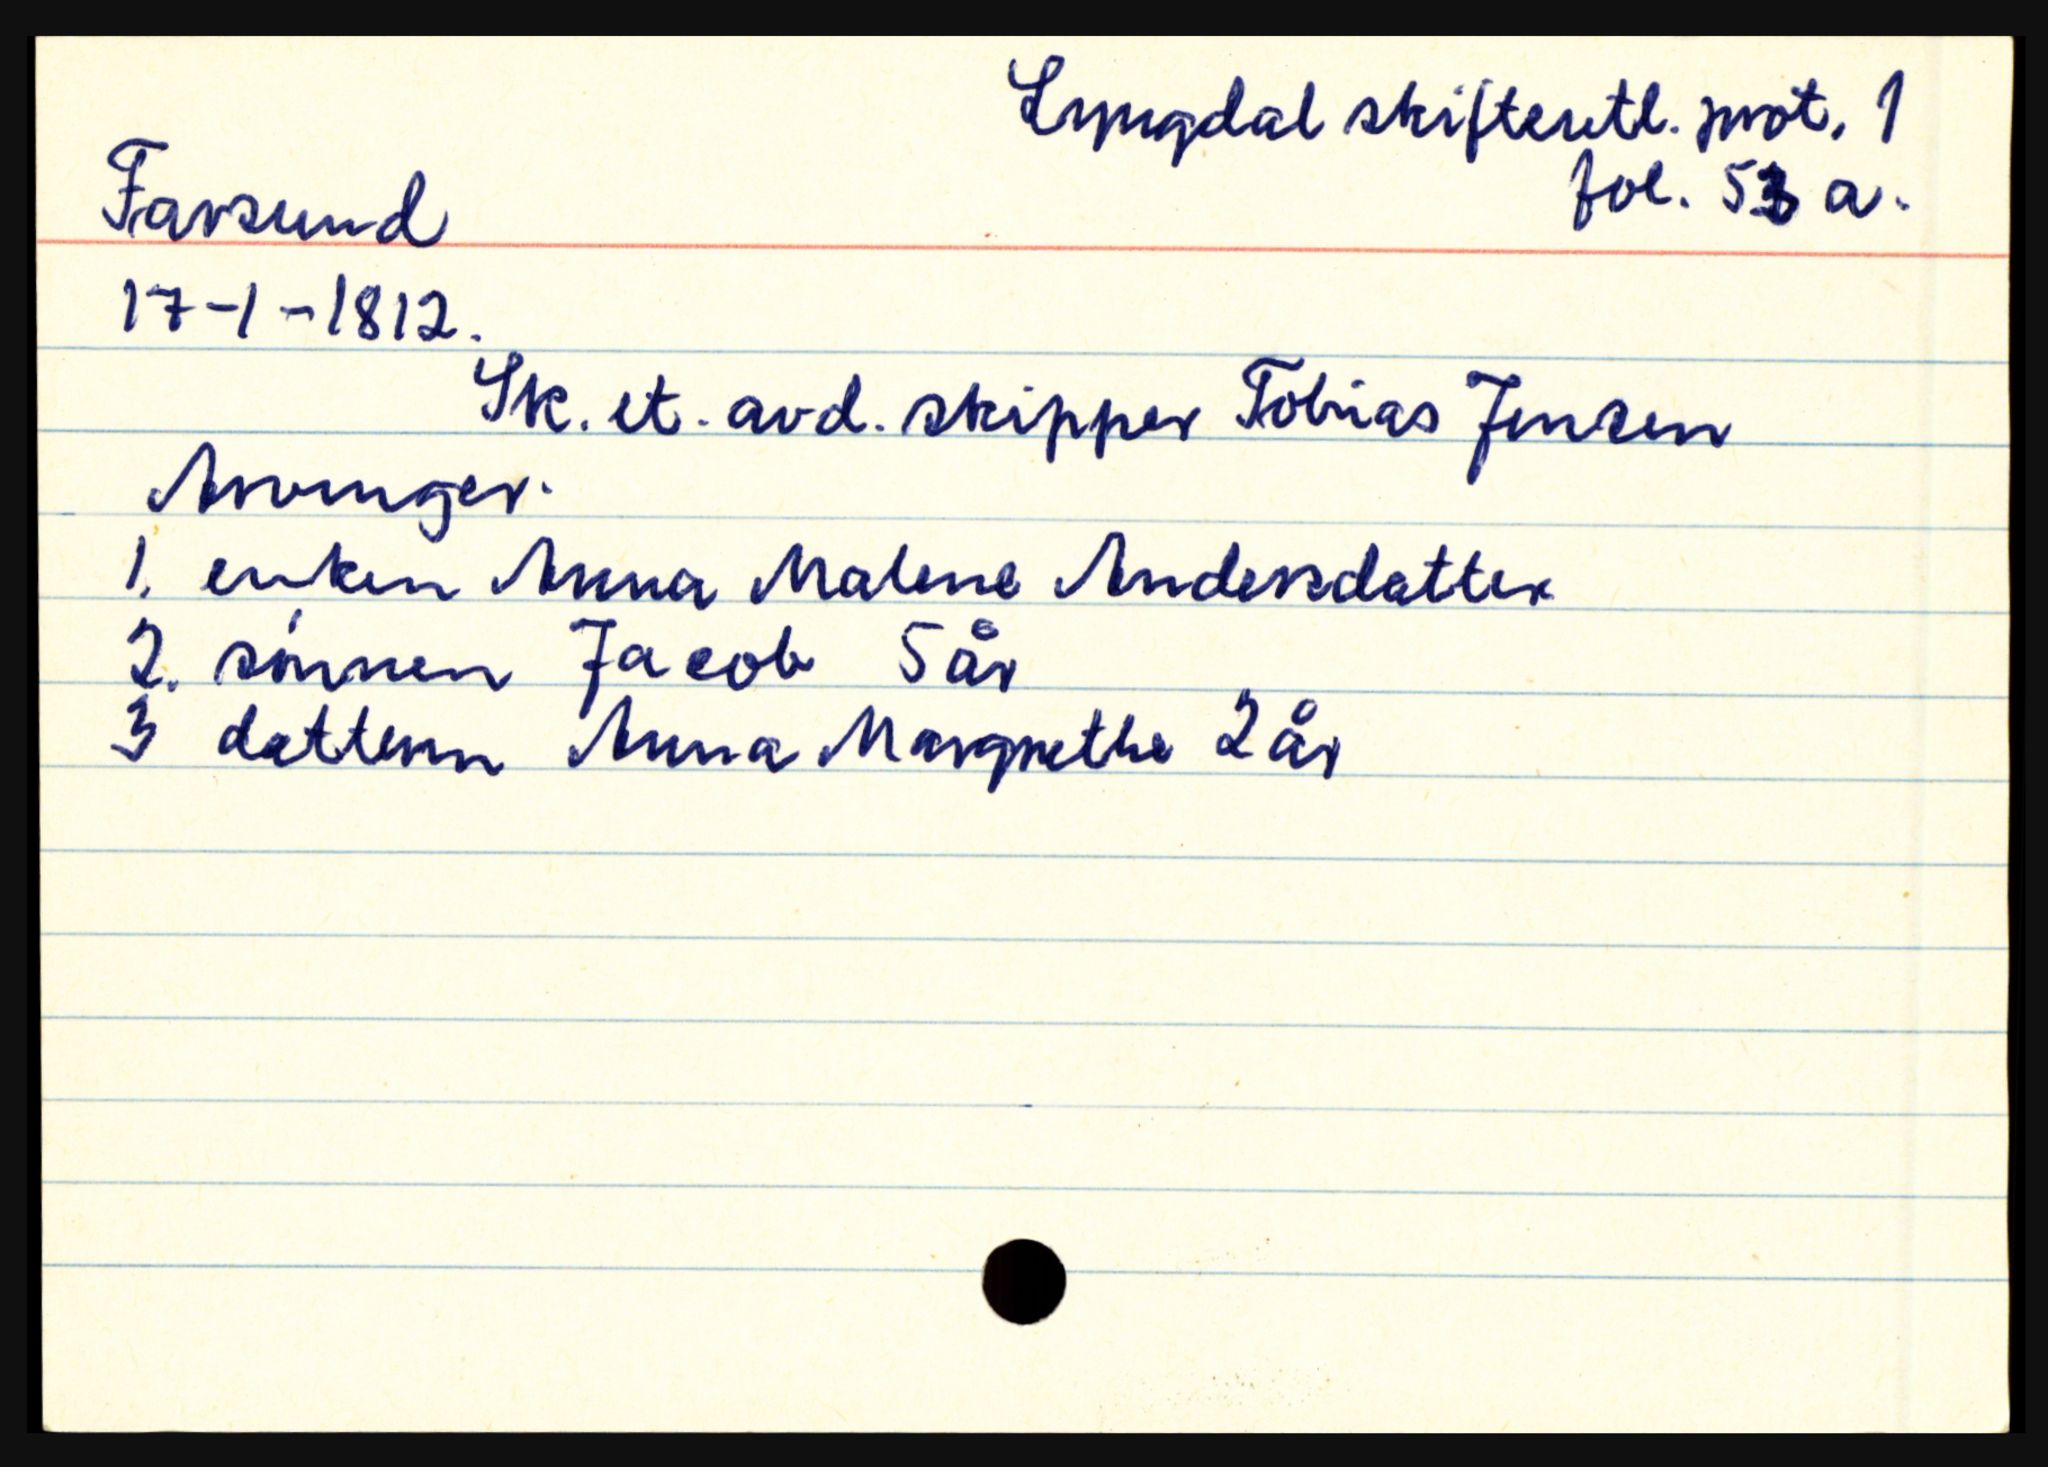 Lyngdal skifteretl. prot. 1
fol. 53 a.
Farsund
17-1-1812.
Sk. et. avd. skipper Tobias Jensen
Arvinger.
1. enken Anna Malene Andersdatter
2. sønnen Jacob 5 år
3 datteren Anna Margrethe 2 år